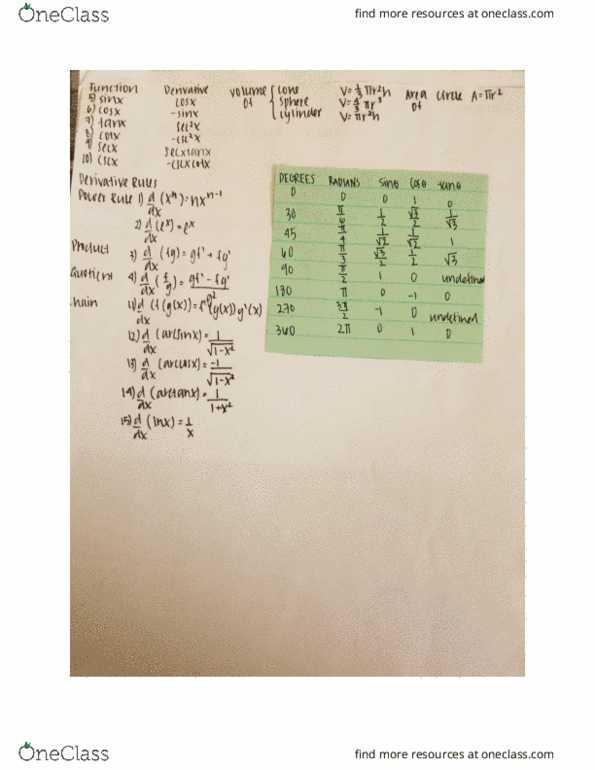 OneClass
find more resources at oneclass.com
Function Derivative
5) sinx cosx
6) cosx -sinx
7) tanx sec²x
8) cotx -csc²x
9) secx secxtanx
10) cscx -cscxcotx
volume of { cone V=⅓πr²h
sphere V=4/3πr³
cylinder V=πr²h
Area of circle A=πr²
Derivative Rules
Power Rule 1) d/dx (xⁿ)=nxⁿ⁻¹
2) d/dx (eˣ)=eˣ
Product 3) d/dx (fg)=gf'+fg'
Quotient 4) d/dx (f/g)=gf'-fg'/g²
hain 11) d/dx (f(g(x))=f'(g(x))g'(x)
12) d/dx (arcsinx)=1/√1-x²
13) d/dx (arccosx)=-1/√1-x²
14) d/dx (arctanx)=1/1+x²
15) d/dx (lnx)=1/x
DEGREES RADIANS sinθ cosθ tanθ
0 0 0 1 0
30 π/6 1/2 √3/2 1/√3
45 π/4 1/√2 1/√2 1
60 π/3 √3/2 1/2 √3
90 π/2 1 0 undefined
180 π 0 -1 0
270 3π/2 -1 0 undefined
360 2π 0 1 0
OneClass
find more resources at oneclass.com